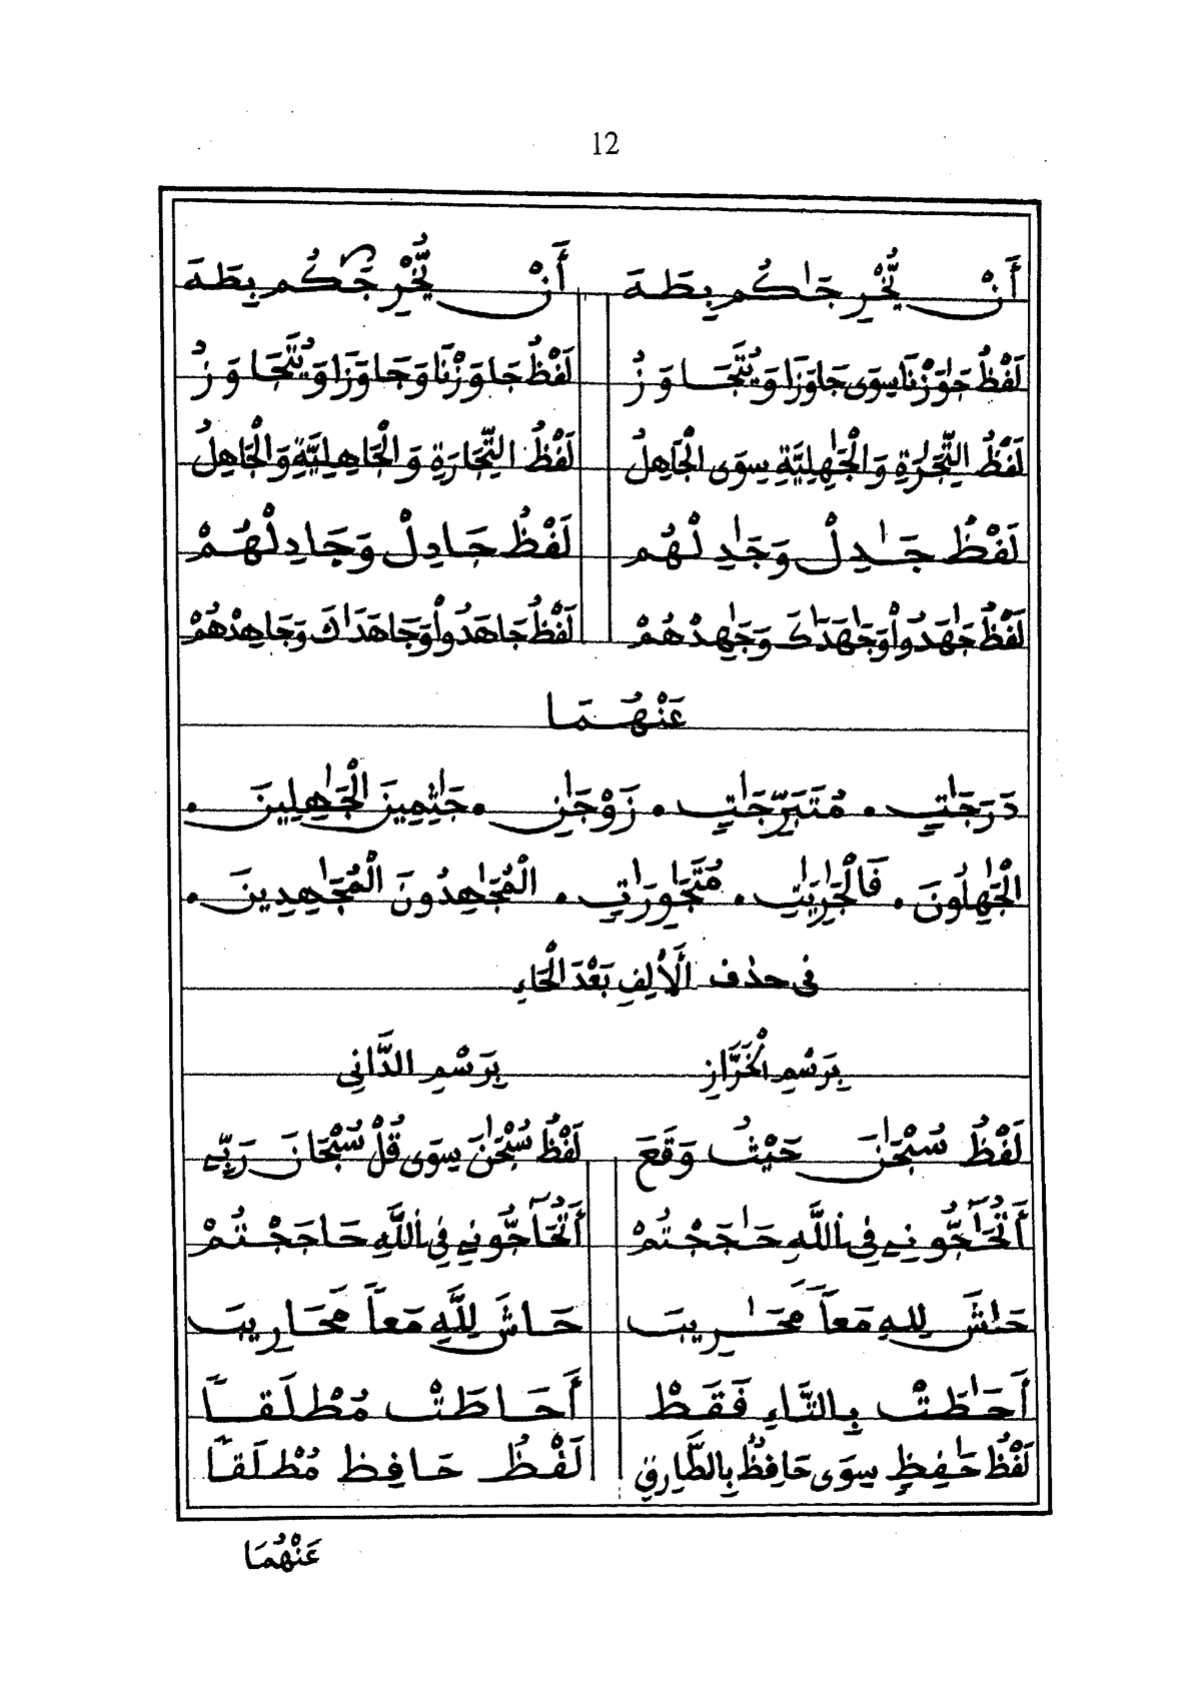 12
أَنْ يُّخْرِجَٰكُم بِطَهَ أَنْ يُّخْرِجَٰكُم بِطَهَ
لَفْظُ جَٰوَزْنَا سِوَى جَاوَزَا وَيُتَّجَاوَزُ لَفْظُ جَاوَزْنَا وَجَاوَزَا وَيُتَّجَاوَزُ
لَفْظُ التِّجَٰرَةِ وَالْجَٰهِلِيَّةِ سِوَى الْجَاهِلُ لَفْظُ التِّجَارَةِ وَالْجَاهِلِيَّةِ وَالْجَاهِلُ
لَفْظُ جَٰدِلْ وَجَٰدِلْهُم لَفْظُ جَادِلْ وَجَادِلْهُمْ
لَفْظُ جَٰهَدُواْ وَجَٰهَدَٰكَ وَجَٰهِدْهُمْ لَفْظُ جَاهَدُواْ وَجَاهَدَٰكَ وَجَاهِدْهُمْ
عَنْهُمَا
دَرَجَٰتٍ . مُتَبَرِّجَٰتٍ . زَوْجَٰنِ . جَٰثِمِينَ الْجَٰهِلِينَ .
الْجَٰهِلُونَ . فَالْجَٰرِيَٰتِ . مُتَجَٰوِرَٰتٍ . الْمُجَٰهِدُونَ الْمُجَٰهِدِينَ .
فى حذف الْأَلِفِ بَعْدَ الْحَاءِ
بِرَسْمِ الْخَرَّازِ بِرَسْمِ الدَّانِى
لَفْظُ سُبْحَٰنَ حَيْثُ وَقَعَ لَفْظُ سُبْحَٰنَ سِوَى قُلْ سُبْحَانَ رَبِّے
أَتُحَٰٓجُّونِے فِى اللَّهِ حَٰجَجْتُمْ أَتُحَآجُّونِے فِى اللَّهِ حَاجَجْتُمْ
حَٰشَ لِلهِ مَعاً مَحَٰرِيبَ حَاشَ لِلَّهِ مَعاً مَحَارِيبَ
أَحَٰطَتْ بِالتَّاءِ فَقَطْ أَحَاطَتْ مُطْلَقاً
لَفْظُ حَٰفِظٍ سِوَى حَافِظٌ بِالطَّارِقِ لَفْظُ حَافِظ مُطْلَقاً
عَنْهُمَا